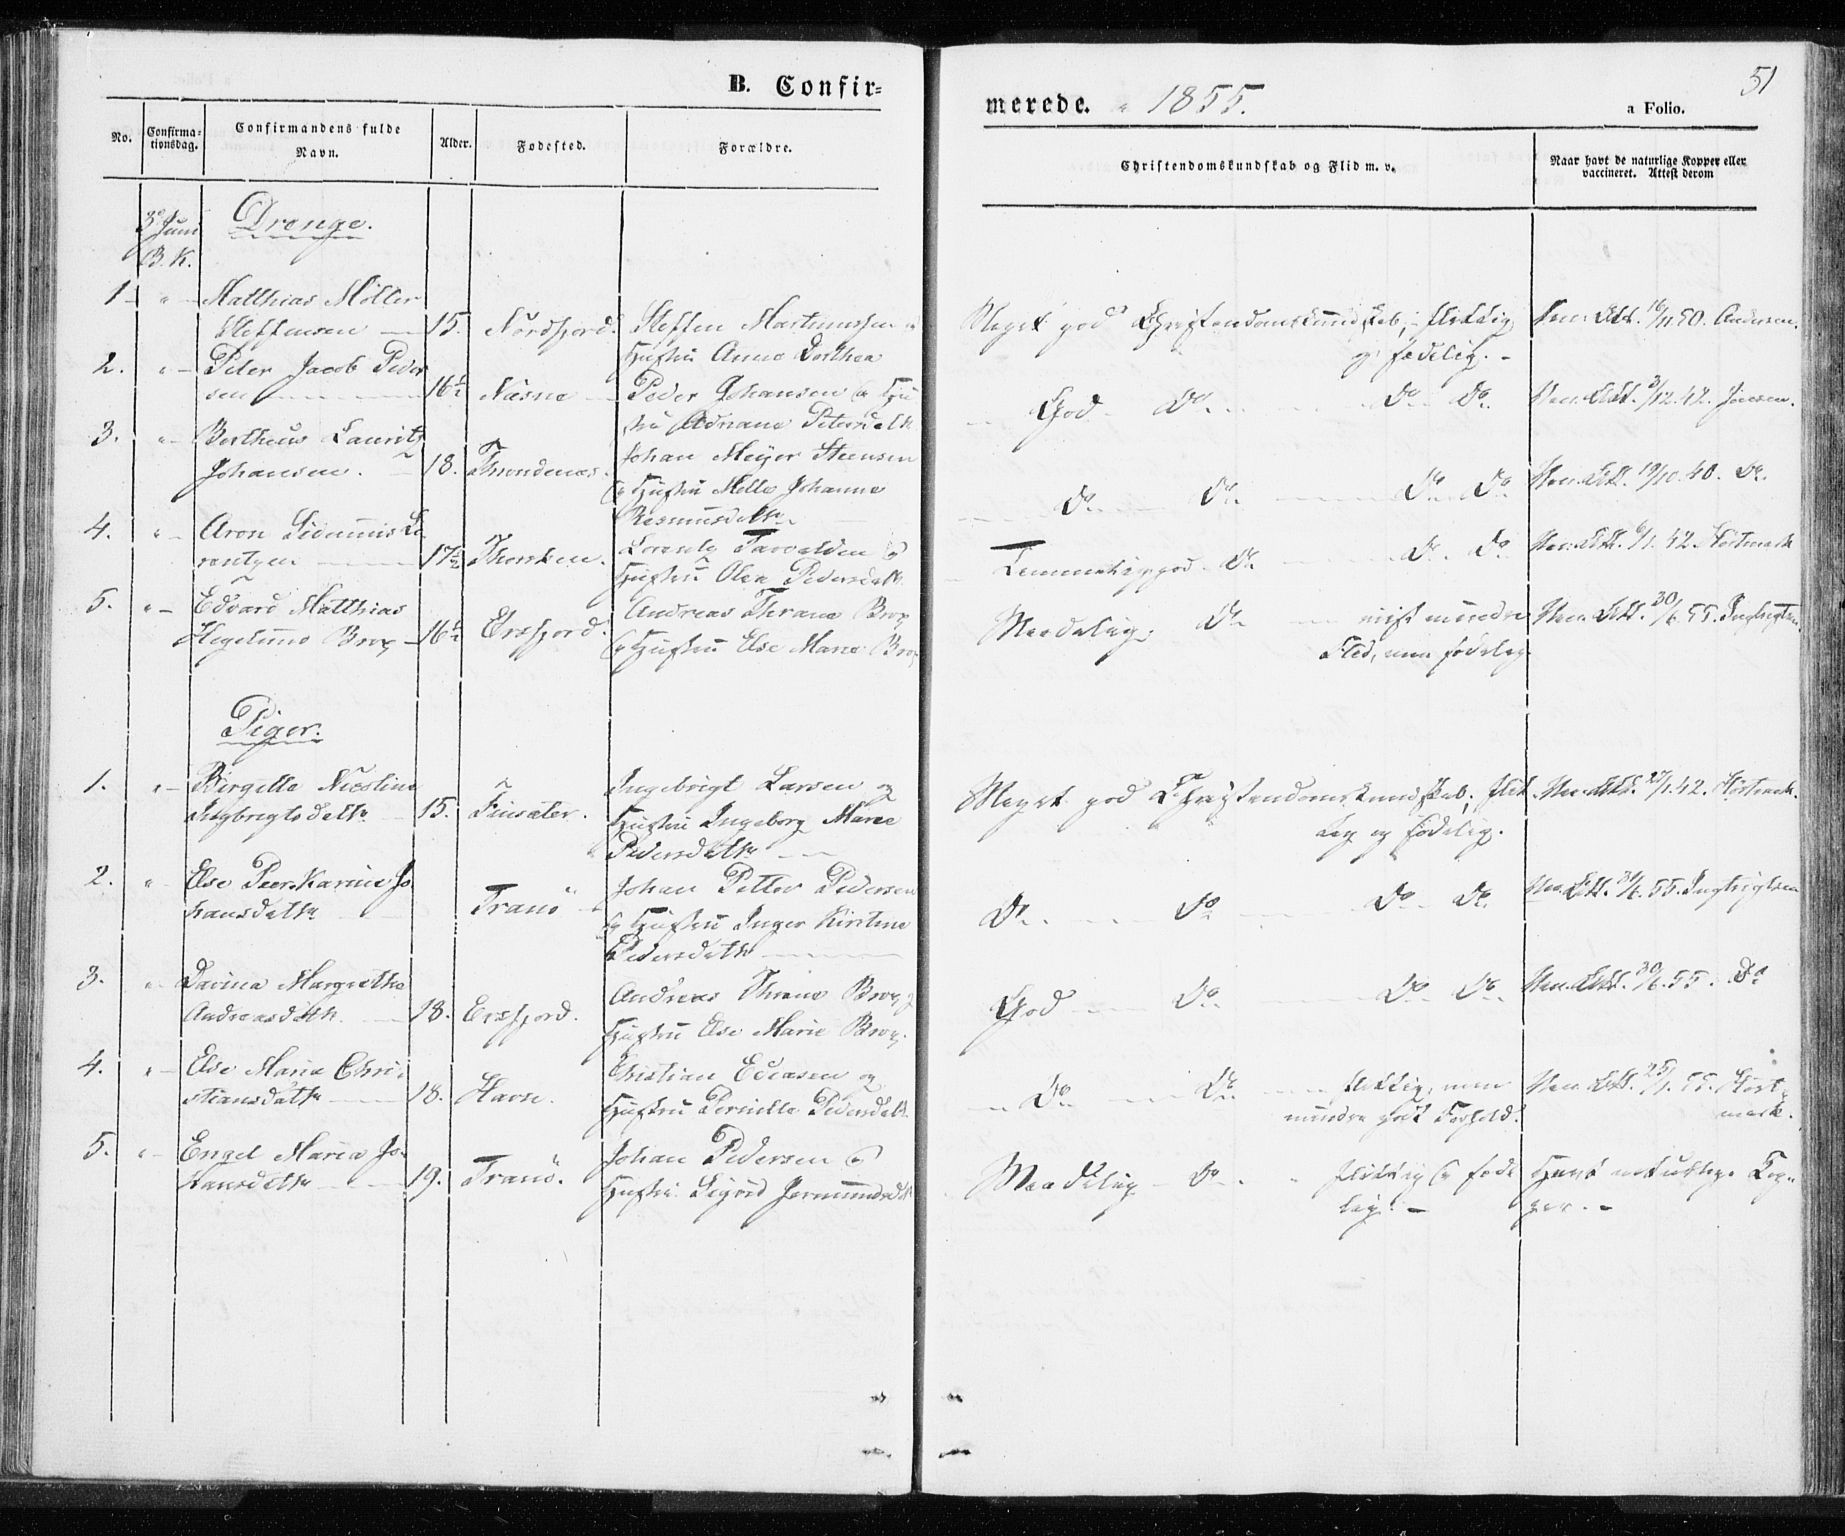 B. Confir=
merede. 1855.
51
a Folio.
No.
Confirma-
tionsdag.
Confirmandens fulde
Navn.
Alder.
Fødested.
Forældre.
Christendomskundskab og Flid m. v.
Naar havt de naturlige Kopper eller
vaccineret. Attest derom
3 Juni
B. K.
Drenge.
1 Matthias Möller
Steffensen 15. Nordfjord. Steffen Martinussen
Hustru Anne Dorthea
Meget god Christendomskundskab; flittig
og sædelig.
Vac. Att. 16/11 50. Andersen.
2. Peter Jacob Peder
sen 16½ Næsne Peder Johansen & Hu
stru Adriane Petersdatr
God Do Do Do
Vac. Att. 3/12.42. Jensen.
3. Bertheus Lauritz
Johansen. 18. Throndenæs. Johan Meyer Steensen
& Hustru Mette Johanna
Rasmusdatr.
Do Do Do Do
Vac. Att. 19/10.40. Do.
4. Aron Sidenius Lo
rentzen 17½ Thorsken. Lorentz &
Hustru Olea Pedersdatr
Temmelig god Do Do Do
Vac. Att. 6/1.42. Hostmark
5. Edvard Matthias
Hegelund Brox 16½ Ersfjord. Andreas Thrane Brox
& Hustru Else Marie Brox
Maadelig Do mindre
Flid, men sædelig
Vac. Att. 30/6.55. Ingbrigtsen.
Piger.
1. Birgitte Nicoline
Ingbrigtsdatr 15. Finsæter. Ingebrigt Larsen og
Hustru Ingeborg Marie
Pedersdatr
Meget god Christendomskundskab; flit
tig og sædelig.
Vac. Att. 27/1.42. Hostmark.
2. Else Peer Karine Jo
hansdatr Tranö Johan Petter Pedersen
& Hustru Inger Kirstine
Pedersdatr
Do Do Do Do
Vac. Att. 30/6.55. Ingbrigtsen
3. Davina Margrethe
Andreasdatr. 18. Ersfjord. Andreas Thrane Brox &
Hustru Else Marie Brox.
God Do Do Do
Vac. Att. 30/6.55. Do
4. Else Maria Chri
stiansdatr 18. Havn. Christian Edeasen og
Hustru Pernille Pedersdatr
Do Do flittig, men
mindre godt Forhold.
Vac. Att. 25/1.55. Host
mark.
5. Engel Maria Jo
hansdatr 19. Tranö. Johan Pedersen &
Hustru Sigrid Jermundsdatr
Maadelig Do flittig & sæde
lig.
Havt naturlige Kop
per.